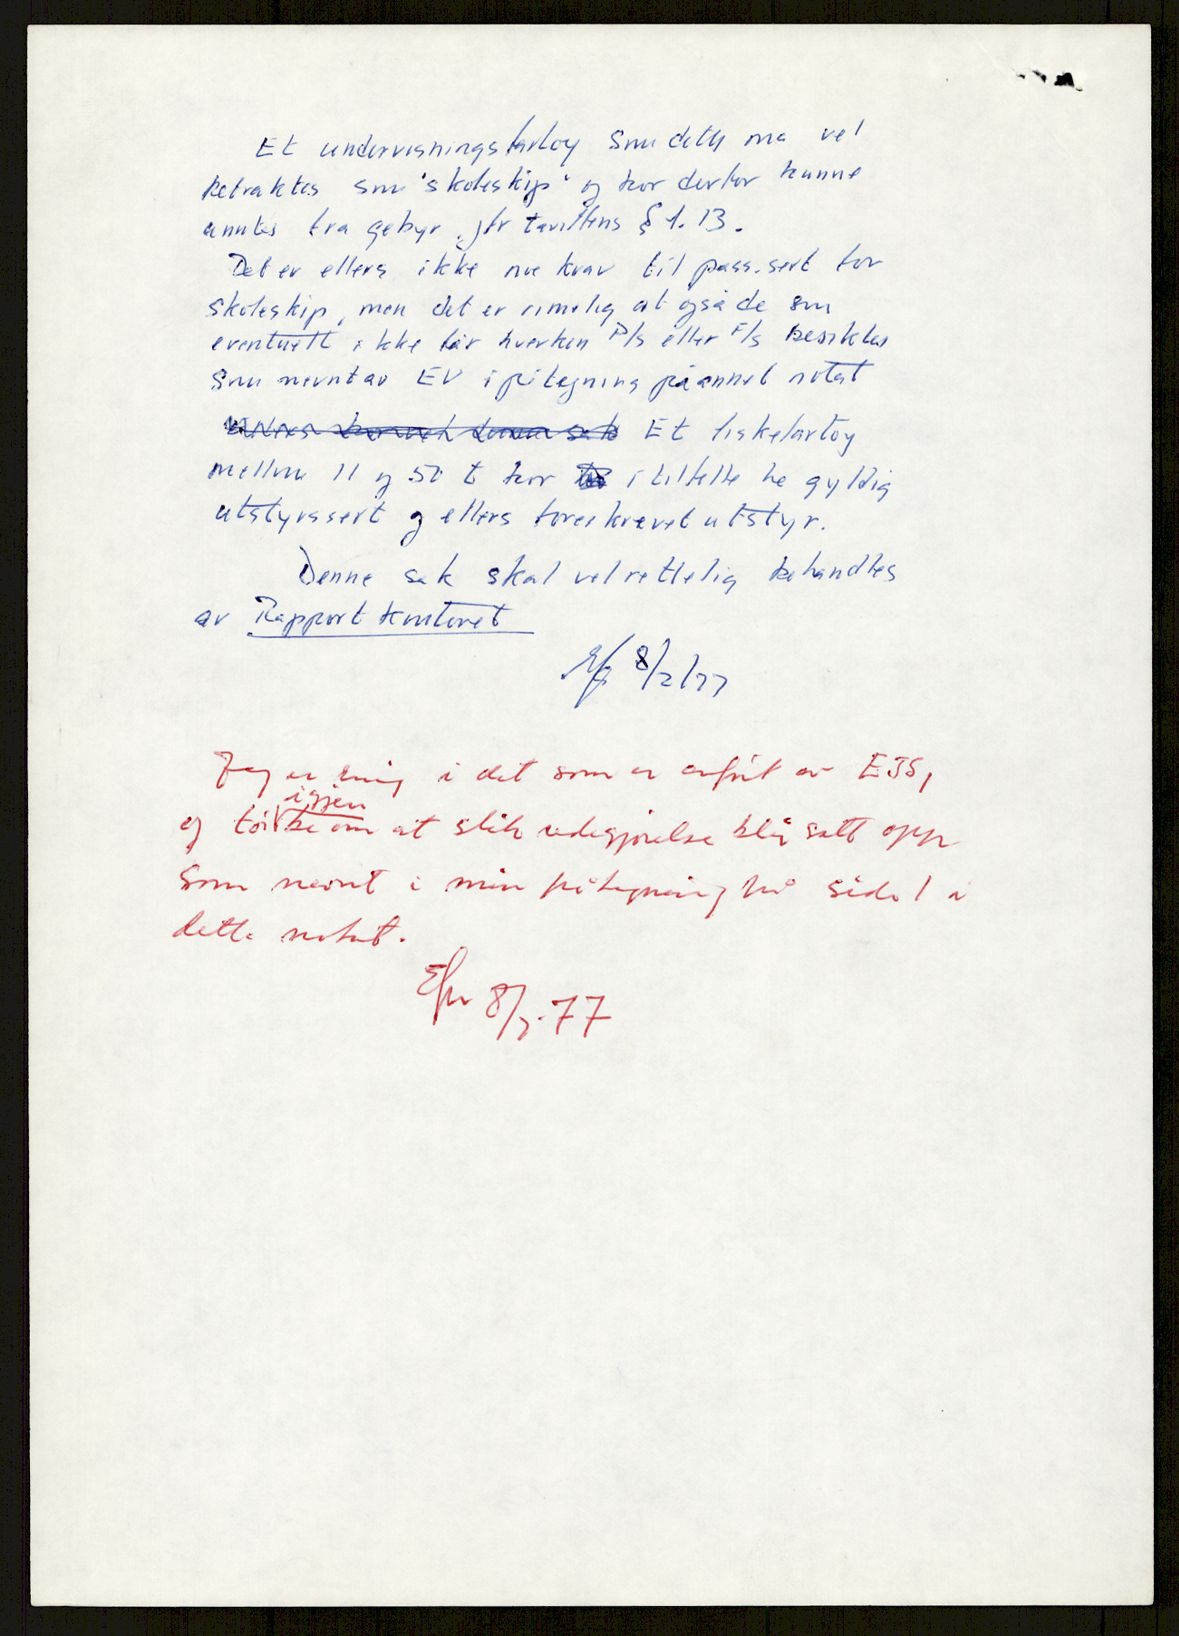 Et undervisningsfartøy som dette må vel
betraktes som "skoleskip" og bør derfor kunne
unntas fra gebyr jfr tariffens § 1.13.
Det er ellers ikke noe krav til pass.sert for
skoleskip, men det er rimelig at også de som
eventuelt ikke får hverken P/s eller F/s besiktes
som nevnt av EV i påtegning på annet notat
Et fiskefartøy
mellom 11 og 50 t bør i tilfelle ha gyldig
utstyrssert og ellers foreskrevet utstyr.
Denne sak skal vel rettelig behandles
av Rapportkontoret
8/2/77
Jeg er enig i det som er anført av EJS,
igjen
og tør be om at slik redegjørelse blir satt opp
som nevnt i min påtegning på side 1 i
dette notat.
8/2-77